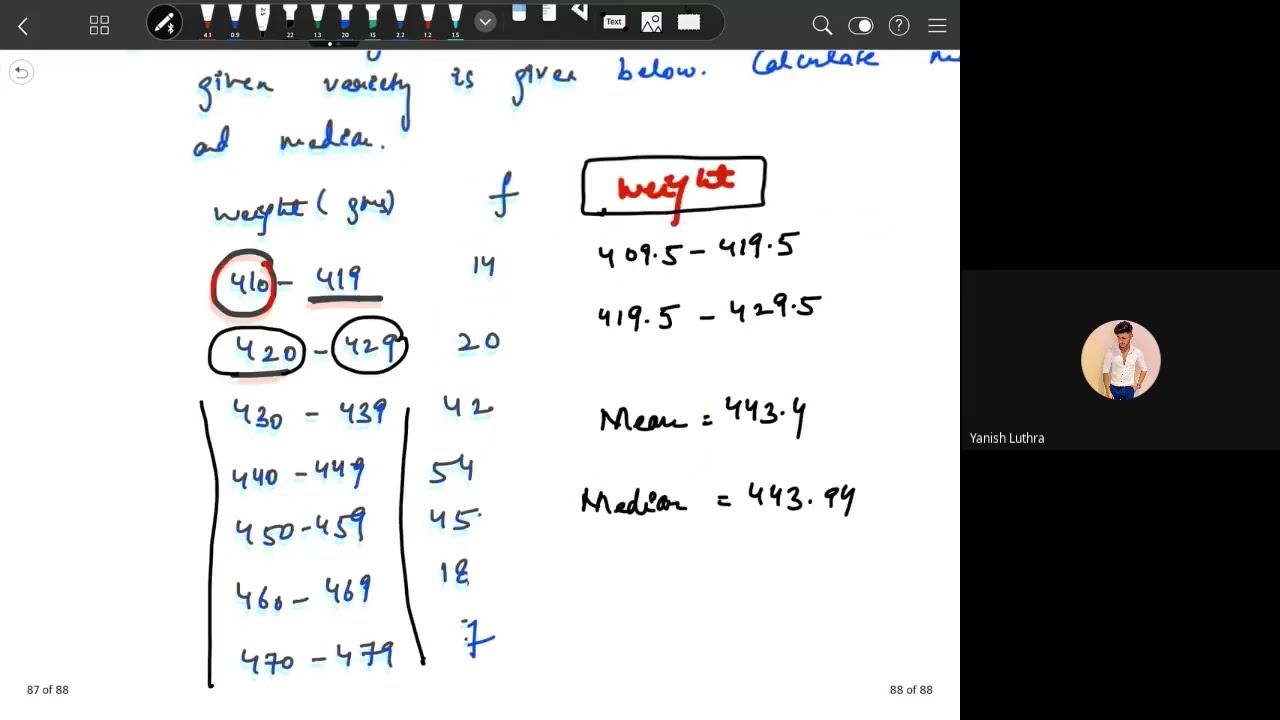 4.1 0.9 2.5 22 1.3 20 15 2.2 1.2 1.5 Text
given variety is given below. Calculate
and median.
weight (gms) f
410 - 419 14
420 - 429 20
430 - 439 42
440 - 449 54
450 - 459 45
460 - 469 18
470 - 479 7
weight
409.5 - 419.5
419.5 - 429.5
Mean = 443.4
Median = 443.94
87 of 88
88 of 88
Yanish Luthra